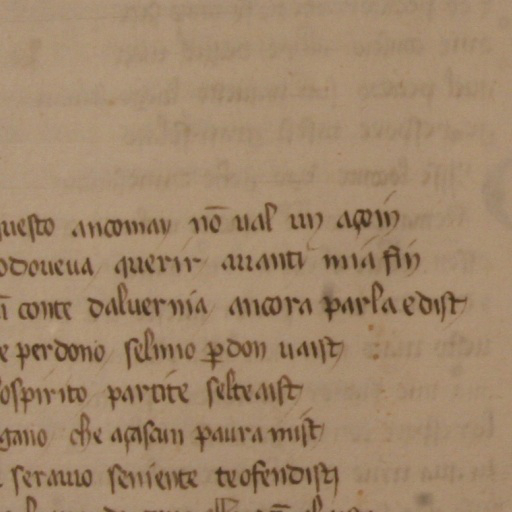 questo ancomay nō ual un açoin
odoueua querir auanti mia fin
conte daluernia ancora parla e dist
e perdono selmio ꝑdon uaist
ospirito partite selteaist
gano che açascun paura mist
serauo seniente teofendist